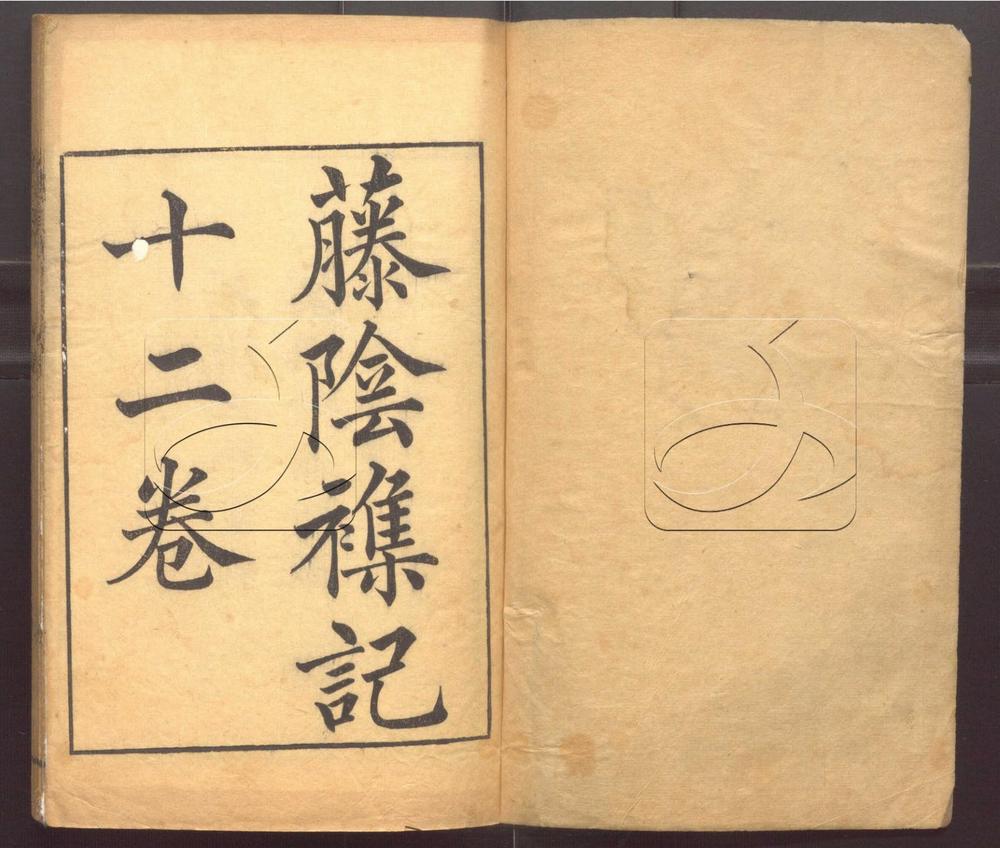 藤陰襍記
十二卷